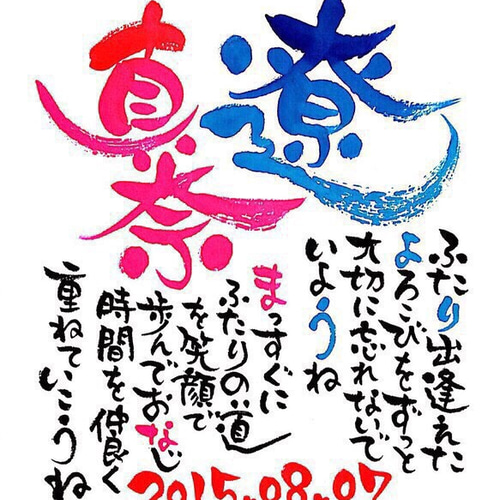 遼
真奈
ふたり出逢えた
よろこびをずっと
大切に忘れないで
いようね
まっすぐに
ふたりの道
を笑顔で
歩んでおなじ
時間を仲良く
重ねていこうね
2015.08.07